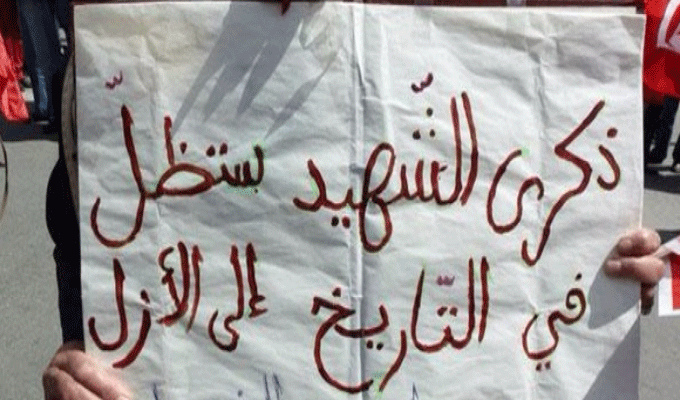 ذكرى الشّهيد ستظلّ
في التّاريخ إلى الأزل